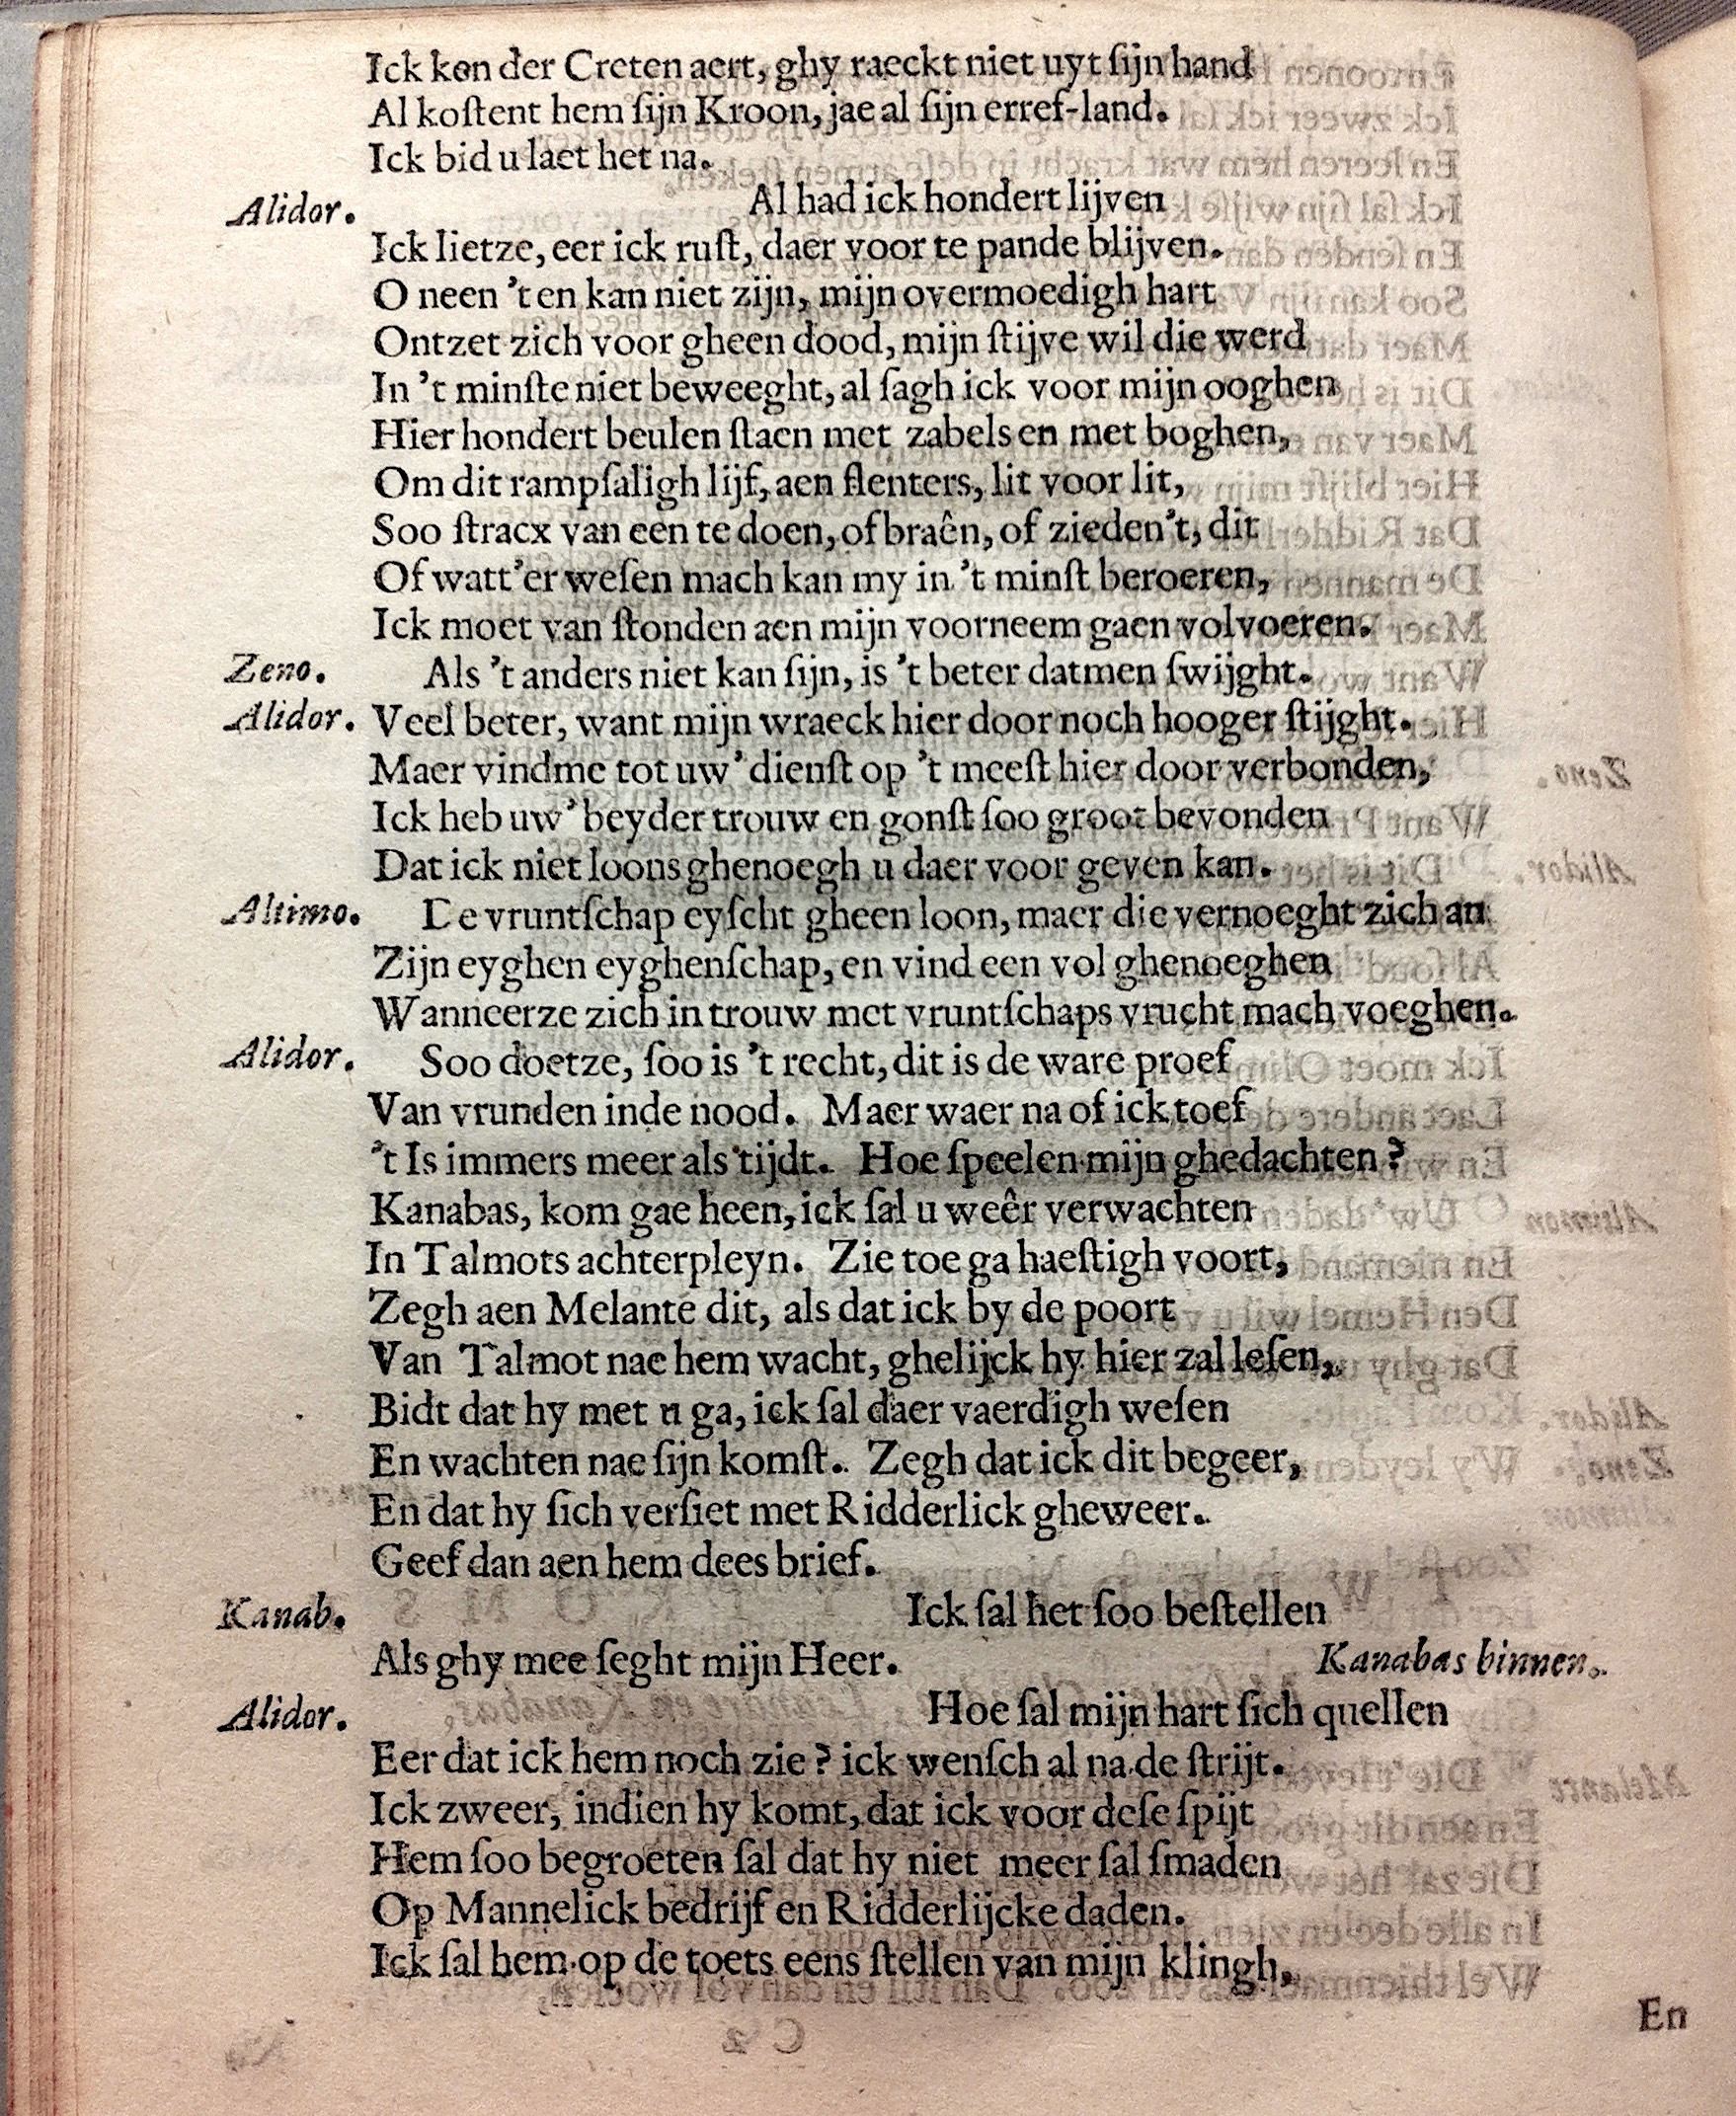 Ick ken der Creten aert, ghy raeckt niet uyt ſijn hand
Al koſtent hem ſijn Kroon, jae al ſijn erref-land.
Ick bid u laet het na.
Alidor. Al had ick hondert lijven
Ick lietze, eer ick ruſt, daer voor te pande blijven.
O neen 't en kan niet zijn, mijn overmoedigh hart
Ontzet zich voor gheen dood, mijn ſtijve wil die werd
In 't minſte niet beweeght, al ſagh ick voor mijn ooghen
Hier hondert beulen ſtaen met zabels en met boghen,
Om dit rampſaligh lijf, aen ſlenters, lit voor lit,
Soo ſtracx van een te doen, of braên, of zieden't, dit
Of watt'er weſen mach kan my in 't minſt beroeren,
Ick moet van ſtonden aen mijn voorneem gaen volvoeren.
Zeno. Als 't anders niet kan ſijn, is 't beter datmen ſwijght.
Alidor. Veel beter, want mijn wraeck hier door noch hooger ſtijght.
Maer vindme tot uw' dienſt op 't meeſt hier door verbonden,
Ick heb uw' beyder trouw en gonſt ſoo groot bevonden
Dat ick niet loons ghenoegh u daer voor geven kan.
Altimo. De vruntſchap eyſcht gheen loon, maer die vernoeght zich an
Zijn eyghen eyghenſchap, en vind een vol ghenoeghen
Wanneerze zich in trouw met vruntſchaps vrucht mach voeghen.
Alidor. Soo doetze, ſoo is 't recht, dit is de ware proef
Van vrunden inde nood. Maer waer na of ick toef
't Is immers meer als tijdt. Hoe ſpeelen mijn ghedachten?
Kanabas, kom gae heen, ick ſal u weêr verwachten
In Talmots achterpleyn. Zie toe ga haeſtigh voort,
Zegh aen Melante dit, als dat ick by de poort
Van Talmot nae hem wacht, ghelijck hy hier zal leſen,
Bidt dat hy met u ga, ick ſal daer vaerdigh weſen
En wachten nae ſijn komſt. Zegh dat ick dit begeer,
En dat hy ſich verſiet met Ridderlick gheweer.
Geef dan aen hem dees brief.
Kanab. Ick ſal het ſoo beſtellen
Als ghy mee ſeght mijn Heer. Kanabas binnen.
Alidor. Hoe ſal mijn hart ſich quellen
Eer dat ick hem noch zie? ick wenſch al na de ſtrijt.
Ick zweer, indien hy komt, dat ick voor deſe ſpijt
Hem ſoo begroeten ſal dat hy niet meer ſal ſmaden
Op Mannelick bedrijf en Ridderlijcke daden.
Ick ſal hem op de toets eens ſtellen van mijn klingh,
En